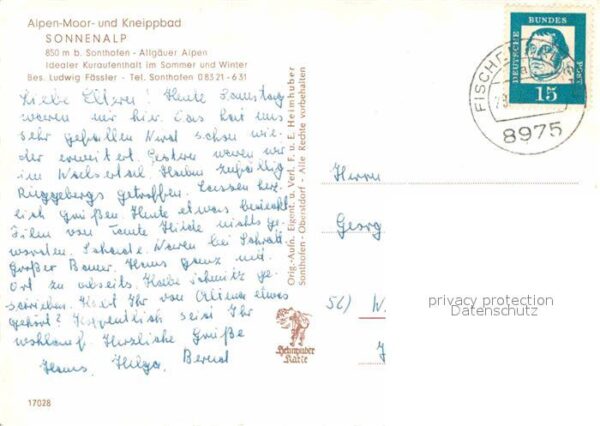 Alpen-Moor- und Kneippbad
SONNENALP
850 m b. Sonthofen - Allgäuer Alpen
Idealer Kuraufenthalt im Sommer und Winter
Bes. Ludwig Fässler - Tel. Sonthofen 0 83 21 - 631
Liebe Eltern! Heute Samstag
waren wir hier. Das hat uns
sehr gefallen Wird schon wie-
der erweitert. Gestern waren wir
im Walsertal. Haben zufällig
Ringgebergs getroffen. Lassen herz-
lich Grüßen. Heute etwas bedeckt
Film von Tante Hilde nichts ge-
worden. Schade. Waren bei
Großer Bauer. Haus ganz mit
Ort zu abseits. Habe Schmitz ge-
schrieben. Habt Ihr von etwas
gehört? Hoffentlich seid Ihr
wohlauf. Herzliche Grüße
Hans, Helga, Bernd
17028
Orig.-Aufn. Eigent. u. Verl. F. u. E. Heimhuber
Sonthofen - Oberstdorf - Alle Rechte vorbehalten
Heimhuber
Karte
DEUTSCHE BUNDES POST
15
FISCHEN
8975
Herrn
Georg
56) W.
privacy protection
Datenschutz